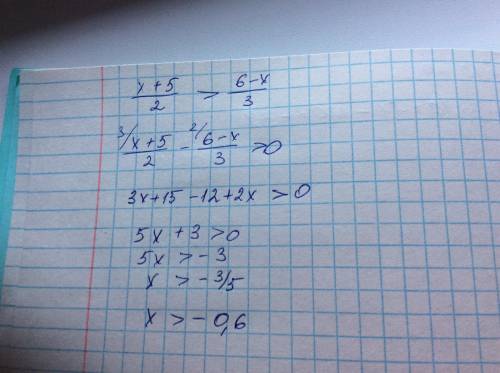 x+5/2 > 6-x/3
3/ x+5/2 - 2/ 6-x/3 >0
3x+15-12+2x >0
5x+3>0
5x >-3
x >-3/5
x >-0,6